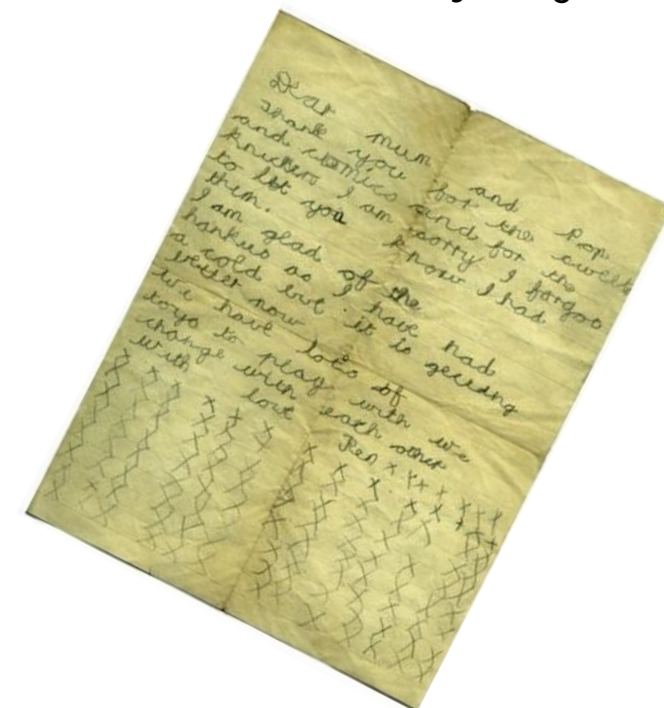 Dear mum and Pop
Thank you for the sweets
and comics and for the
knickers I am sorry I forgot
to let you know I had
them.
I am glad of the
hankus as I have had
a cold but it is getting
better now
we have lots of
toys to play with we
change with each other
with love
Ken x x x x x x x